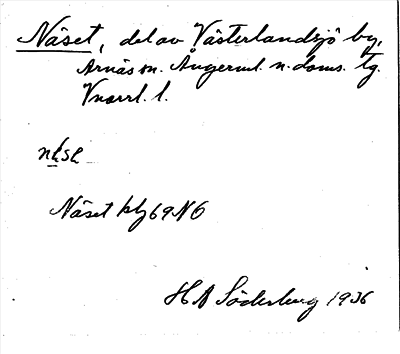 Näset, del av Västerlandsjö by,
Arnäs sn. Ångerml. n. doms. tg.
Vnorrl. l.
Näset kbg 69 NO
H A Söderberg 1936